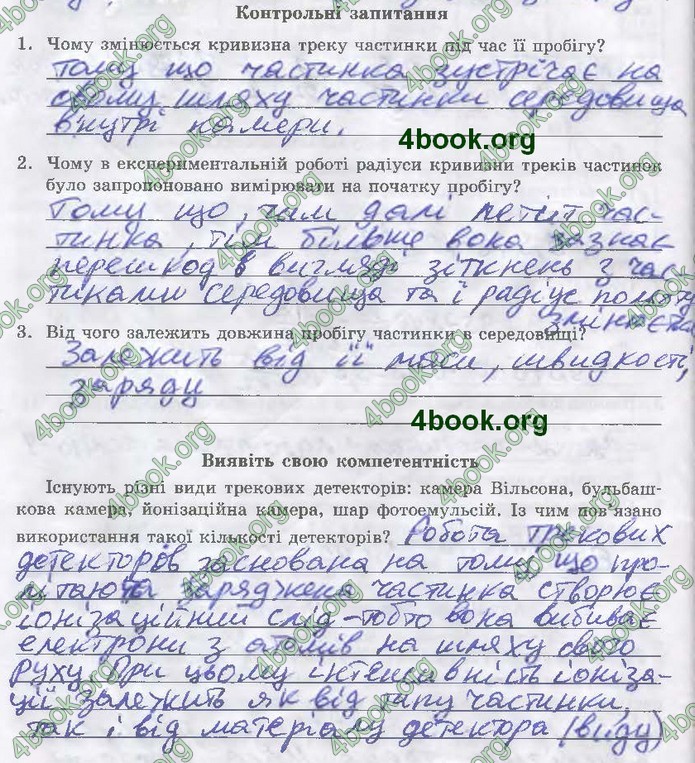 Контрольні запитання
1. Чому змінюється кривизна треку частинки під час її пробігу?
Тому що частинка зустрічає на
своєму шляху частинки середовища
внутрі камери.
4book.org
2. Чому в експериментальній роботі радіуси кривизни треків частинок
було запропоновано вимірювати на початку пробігу?
Тому що, чим далі летит час-
тинка, тим більше вона зазнає
перешкод в вигляді зіткнень з час
тиками середовища та і радіус польоту
змінюєть
3. Від чого залежить довжина пробігу частинки в середовищі?
Залежить від її маси, швидкості,
заряду
4book.org
Виявіть свою компетентність
Існують різні види трекових детекторів: камера Вільсона, бульбаш-
кова камера, йонізаційна камера, шар фотоемульсій. Із чим пов'язано
використання такої кількості детекторів? Робота трекових
детекторів заснована на тому що про-
літаюча заряджена частинка створює
іонізаційний слід - тобто вона вибиває
електрони з атомів на шляху свого
руху. При цьому інтенсивність іоніза-
ції залежить як від типу частинки,
так і від матеріалу детектора (виду)